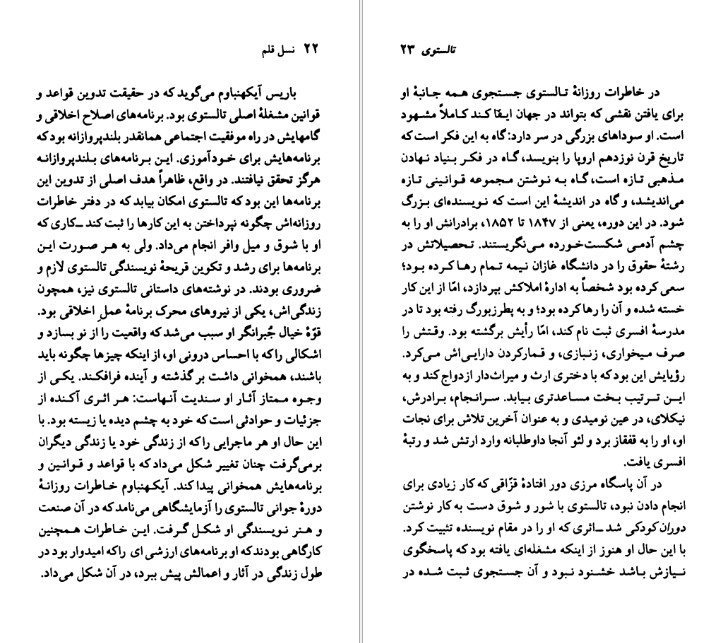 ۲۲ نسل قلم
باریس آیکهنباوم می‌گوید که در حقیقت تدوین قواعد و
قوانین مشغلهٔ اصلی تالستوی بود. برنامه‌های اصلاح اخلاقی و
گامهایش در راه موفقیت اجتماعی همانقدر بلندپروازانه بود که
برنامه‌هایش برای خودآموزی. این برنامه‌های بلندپروازانه
هرگز تحقق نیافتند. در واقع، ظاهراً هدف اصلی از تدوین این
برنامه‌ها این بود که تالستوی امکان بیابد که در دفتر خاطرات
روزانه‌اش چگونه نپرداختن به این کارها را ثبت کند ــ کاری که
او با شوق و میل وافر انجام می‌داد. ولی به هر صورت این
برنامه‌ها برای رشد و تکوین قریحهٔ نویسندگی تالستوی لازم و
ضروری بودند. در نوشته‌های داستانی تالستوی نیز، همچون
زندگی‌اش، یکی از نیروهای محرک برنامهٔ عمل اخلاقی بود.
قوّهٔ خیال جُبرانگر او سبب می‌شد که واقعیت را از نو بسازد و
اشکالی را که با احساس درونی او، از اینکه چیزها چگونه باید
باشند، همخوانی داشت بر گذشته و آینده فرافکند. یکی از
وجوه ممتاز آثار او سندیت آنهاست: هر اثری آکنده از
جزئیات و حوادثی است که خود به چشم دیده یا زیسته بود. با
این حال او هر ماجرایی را که از زندگی خود یا زندگی دیگران
برمی‌گرفت چنان تغییر شکل می‌داد که با قواعد و قوانین و
برنامه‌هایش همخوانی پیدا کند. آیکهنباوم خاطرات روزانهٔ
دورهٔ جوانی تالستوی را آزمایشگاهی می‌نامد که در آن صنعت
و هنر نویسندگی او شکل گرفت. این خاطرات همچنین
کارگاهی بودند که او برنامه‌های ارزشی ای را که امیدوار بود در
طول زندگی در آثار و اعمالش پیش ببرد، در آن شکل می‌داد.
تالستوی ۲۳
در خاطرات روزانهٔ تالستوی جستجوی همه جانبهٔ او
برای یافتن نقشی که بتواند در جهان ایفا کند کاملاً مشهود
است. او سوداهای بزرگی در سر دارد: گاه به این فکر است که
تاریخ قرن نوزدهم اروپا را بنویسد، گاه در فکر بنیاد نهادن
مذهبی تازه است، گاه به نوشتن مجموعه قوانینی تازه
می‌اندیشد، و گاه در اندیشهٔ این است که نویسنده‌ای بزرگ
شود. در این دوره، یعنی از ۱۸۴۷ تا ۱۸۵۲، برادرانش او را به
چشم آدمی شکست‌خورده می‌نگریستند. تحصیلاتش در
رشتهٔ حقوق را در دانشگاه غازان نیمه تمام رها کرده بود؛
سعی کرده بود شخصاً به ادارهٔ املاکش بپردازد، امّا از این کار
خسته شده و آن را رها کرده بود؛ و به پطرزبورگ رفته بود تا در
مدرسهٔ افسری ثبت نام کند، امّا رأیش برگشته بود. وقتش را
صرف میخواری، زنبازی، و قمارکردن دارایی‌اش می‌کرد.
رؤیایش این بود که با دختری ارث و میراث‌دار ازدواج کند و به
این ترتیب بخت مساعدتری بیابد. سرانجام، برادرش،
نیکلای، در عین نومیدی و به عنوان آخرین تلاش برای نجات
او، او را به قفقاز برد و لئو آنجا داوطلبانه وارد ارتش شد و رتبهٔ
افسری یافت.
در آن پاسگاه مرزی دور افتادهٔ قزّاقی که کار زیادی برای
انجام دادن نبود، تالستوی با شور و شوق دست به کار نوشتن
دوران کودکی شد ــ اثری که او را در مقام نویسنده تثبیت کرد.
با این حال او هنوز از اینکه مشغله‌ای یافته بود که پاسخگوی
نیازش باشد خشنود نبود و آن جستجوی ثبت شده در